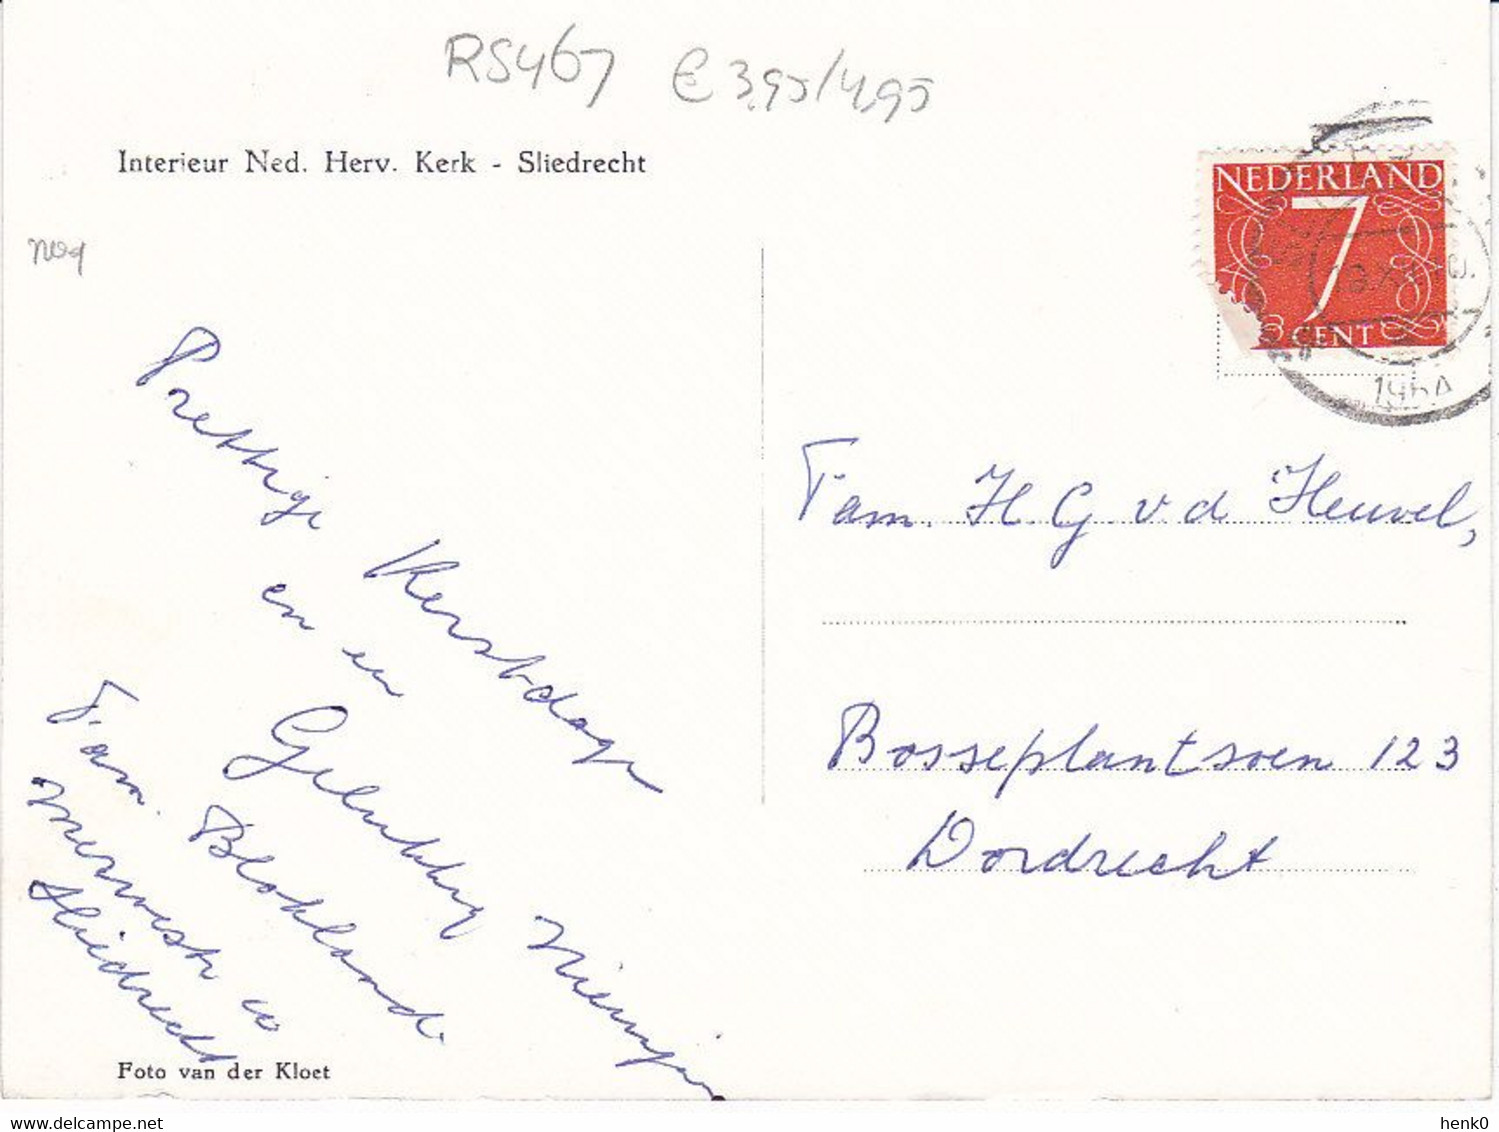 RS467 € 3,95/4,95
Interieur Ned. Herv. Kerk - Sliedrecht
NEDERLAND
7
CENT
1964
Prettige Kerstdage
en en
Gelukkig Nieuwjaar
Fam. Blokland
Merwestr
Sliedrecht
Fam. H. G. v. d Heuvel,
Bosseplantsoen 123
Dordrecht
Foto van der Kloet
henk0